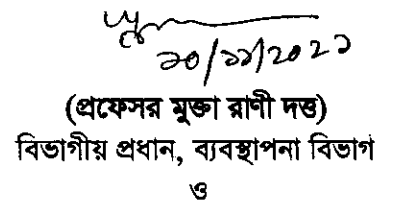 ২০/১১/2021
(প্রফেসর মুক্তা রাণী দত্ত)
বিভাগীয় প্রধান, ব্যবস্থাপনা বিভাগ
ও